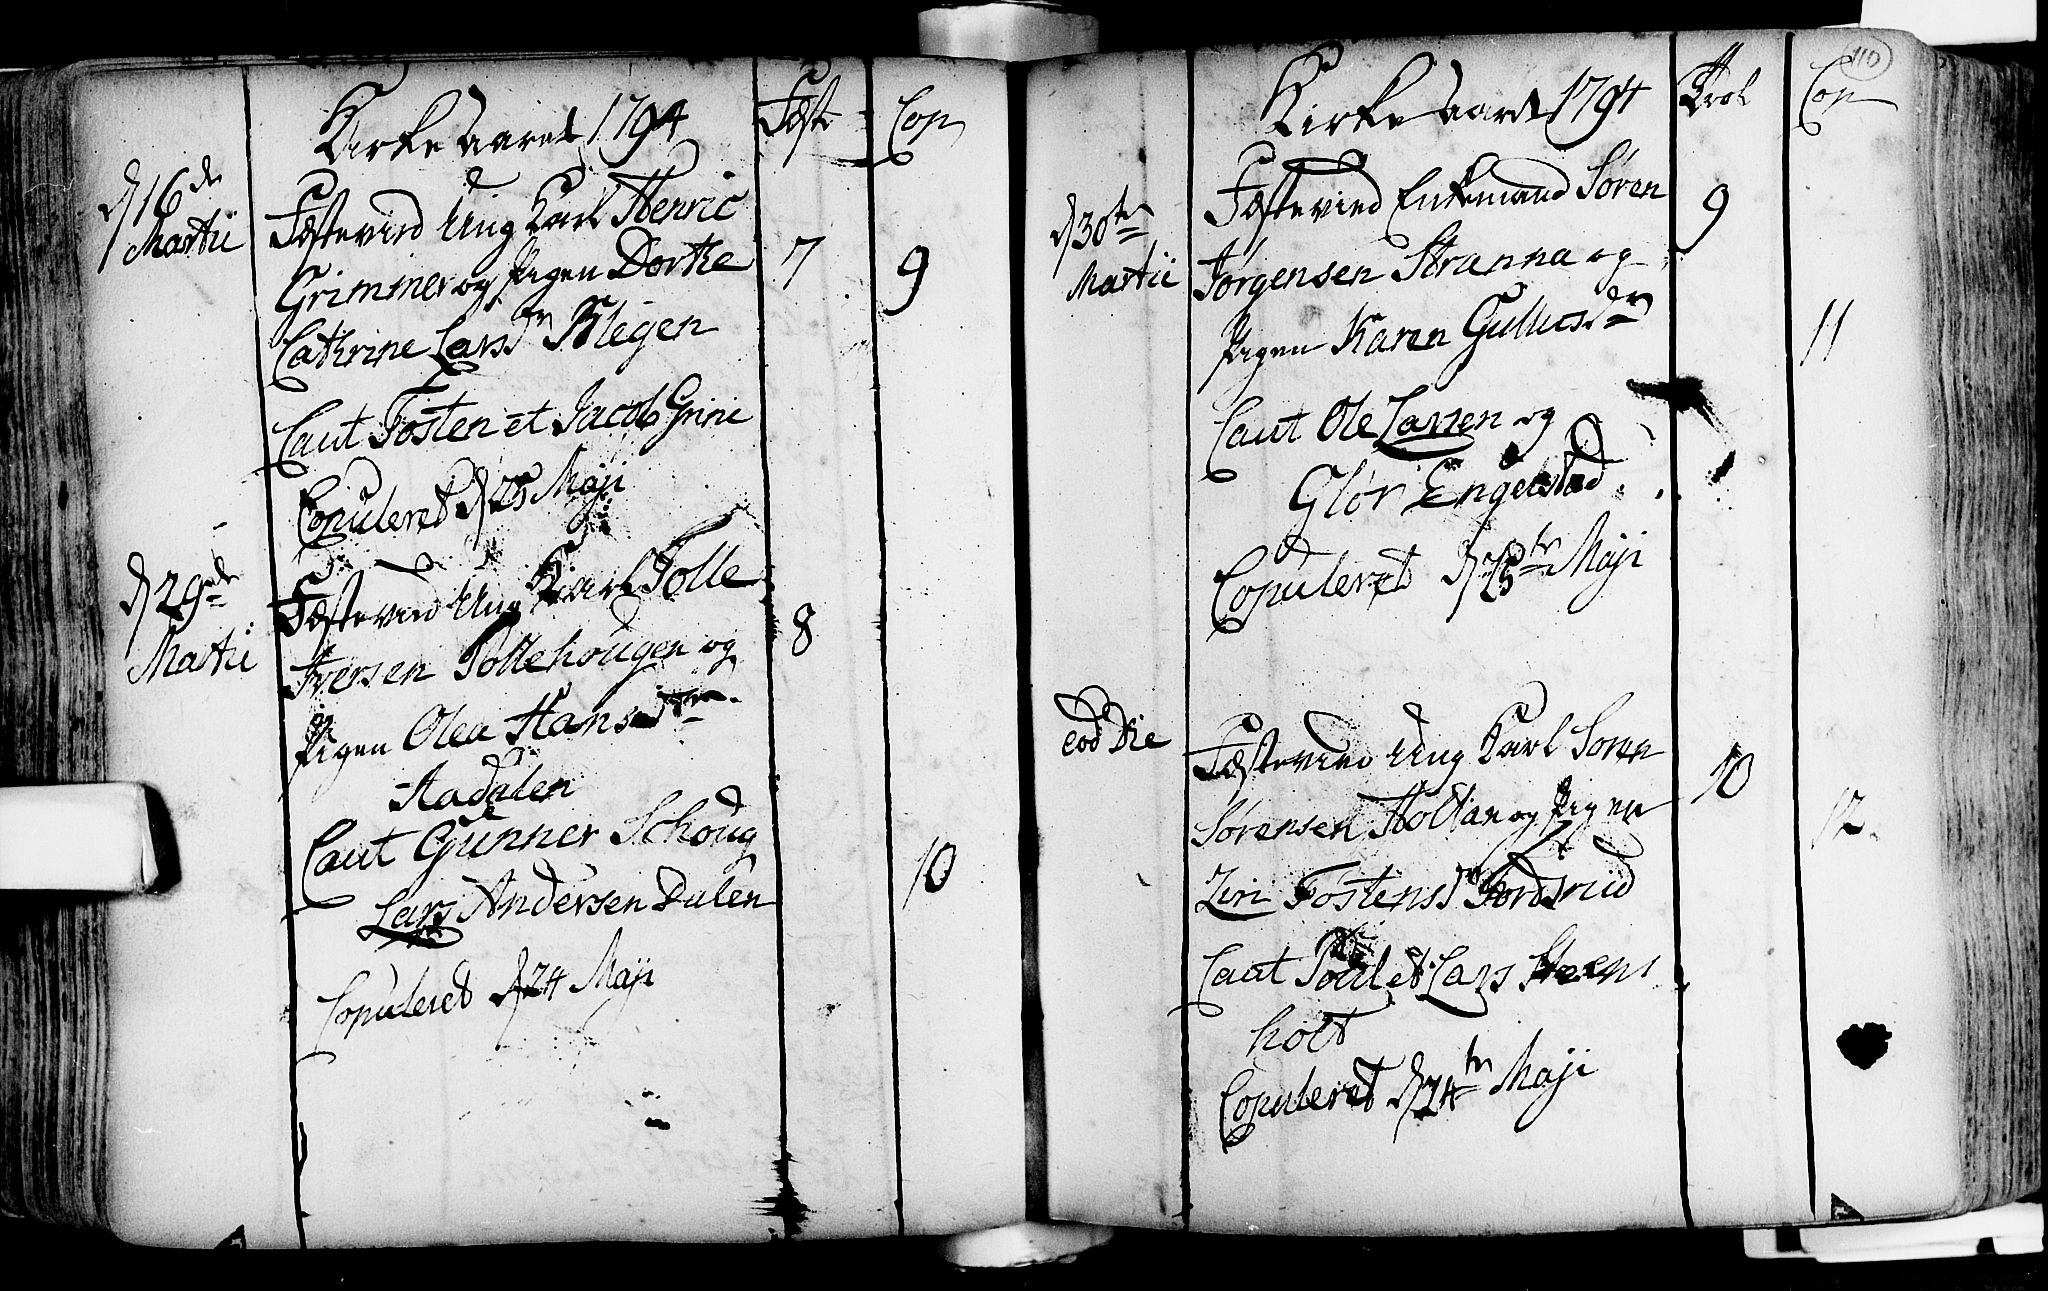 Kirke Aaret 1794
Fæst
Cop
d 16de
Martii
Fæstevied Ung Karl Henric
Grimmer og Pigen Dorthe
7
9
Cathrine Larsdr Klegen
Caut Tosten et Jacob Grini
Copuleret d 25 Maji
d 29de
Martii
Fæstevied Ung Karl Tolle
Iversen Tollehougen og
8
Pigen Olea Hansdtr
Aadalen
Caut Gunner Schoug
10
Lars Andersen Dalen
Copuleret d 24 Maji
110
Kirke Aaret 1794
Cop
d 30te
Martii
Fæstevied Enkemand Søren
9
Jørgensen Stranna og
Pigen Karen Gullicsdr
11
Caut Ole Larsen og
Glør Engelstad
Copuleret d 25te Maji
eod Die
Fæstevied Ung Karl Soren
10
Sørensen Holtan og Pigen
12
Ziri Tostensdr
Caut Poul et Lars Steens
holt
Copuleret d 24te Maji